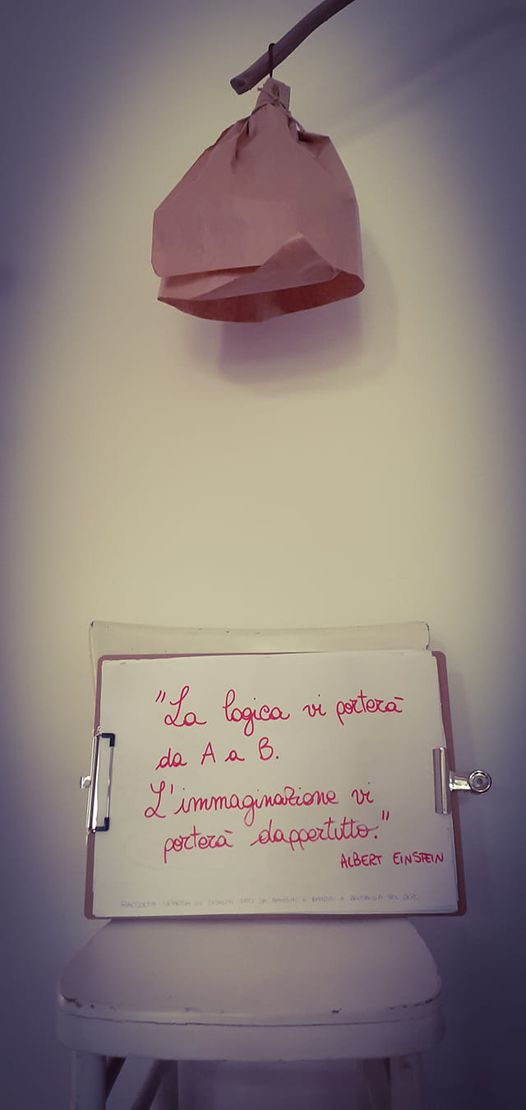 "La logica vi porterà
da A a B.
L'immaginazione vi
porterà dappertutto."
ALBERT EINSTEIN
RACCOLTA DI DISEGNI